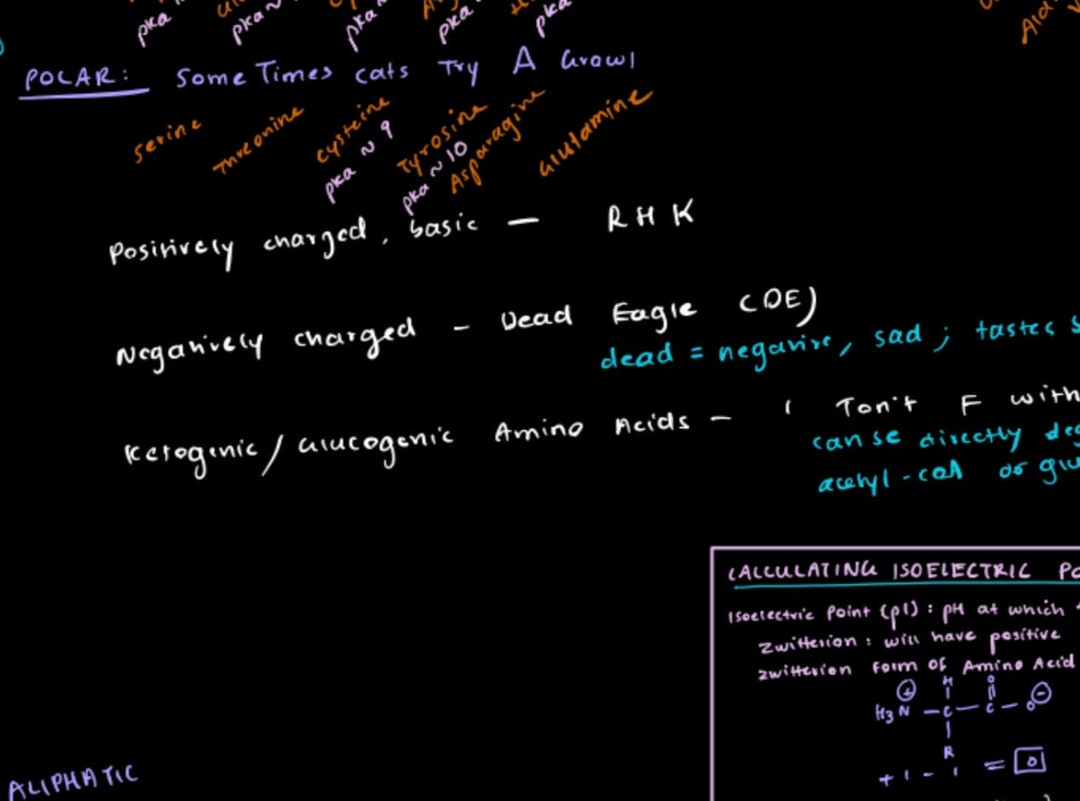 pka pka ~ pka pka pka
POLAR: Some Times cats Try A Growl
serine Threonine cysteine Tyrosine Asparagine Glutamine
pka ~ 9 pka ~ 10
Positively charged, basic — R H K
Negatively charged - Dead Eagle (DE)
dead = negative, sad ; tastes
Ketogenic/Glucogenic Amino Acids - I Ton't F with
can se directly
acetyl-coA or
CALCULATING ISOELECTRIC
Isoelectric Point (pI) : pH at which
Zwitterion : will have positive
zwitterion form of Amino Acid
⊕ H O ⊖
H3N - C - C - O
R
+1 - 1 = 0
ALIPHATIC